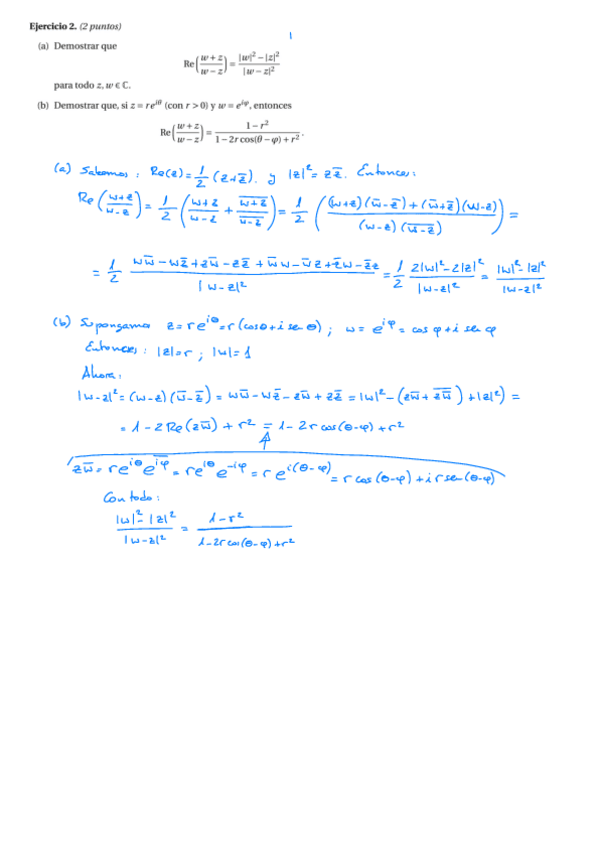 Ejercicio 2. (2 puntos)
(a) Demostrar que
Re((w+z)/(w−z)) = (|w|² − |z|²)/|w−z|²
para todo z, w ∈ ℂ.
(b) Demostrar que, si z = re^{iθ} (con r > 0) y w = e^{iφ}, entonces
Re((w+z)/(w−z)) = (1−r²)/(1−2r cos(θ−φ)+r²).
(a) Sabemos: Re(z) = 1/2 (z+z̅). y |z|² = z z̅. Entonces:
Re((w+z)/(w−z)) = 1/2 ((w+z)/(w−z) + (w̅+̅z̅)/(w̅−̅z̅)) = 1/2 (((w+z)(w̅−z̅)+(w̅+z̅)(w−z))/((w−z)(w̅−̅z̅))) =
= 1/2 (w w̅ − w z̅ + z w̅ − z z̅ + w̅ w − w̅ z + z̅ w − z̅ z)/|w−z|² = 1/2 (2|w|²−2|z|²)/|w−z|² = (|w|²−|z|²)/|w−z|²
(b) Supongamos z = re^{iθ} = r(cosθ + i sen θ); w = e^{iφ} = cos φ + i sen φ
Entonces: |z| = r; |w| = 1
Ahora:
|w−z|² = (w−z)(w̅−z̅) = w w̅ − w z̅ − z w̅ + z z̅ = |w|² − (z w̅ + z̅w̅̅) + |z|²) =
= 1 − 2 Re(z w̅) + r² = 1 − 2r cos(θ−φ) + r²
z w̅ = re^{iθ} e̅^{iφ} = re^{iθ} e^{−iφ} = re^{i(θ−φ)} = r cos(θ−φ) + i r sen(θ−φ)
Con todo:
(|w|² − |z|²)/|w−z|² = (1−r²)/(1−2r cos(θ−φ)+r²)